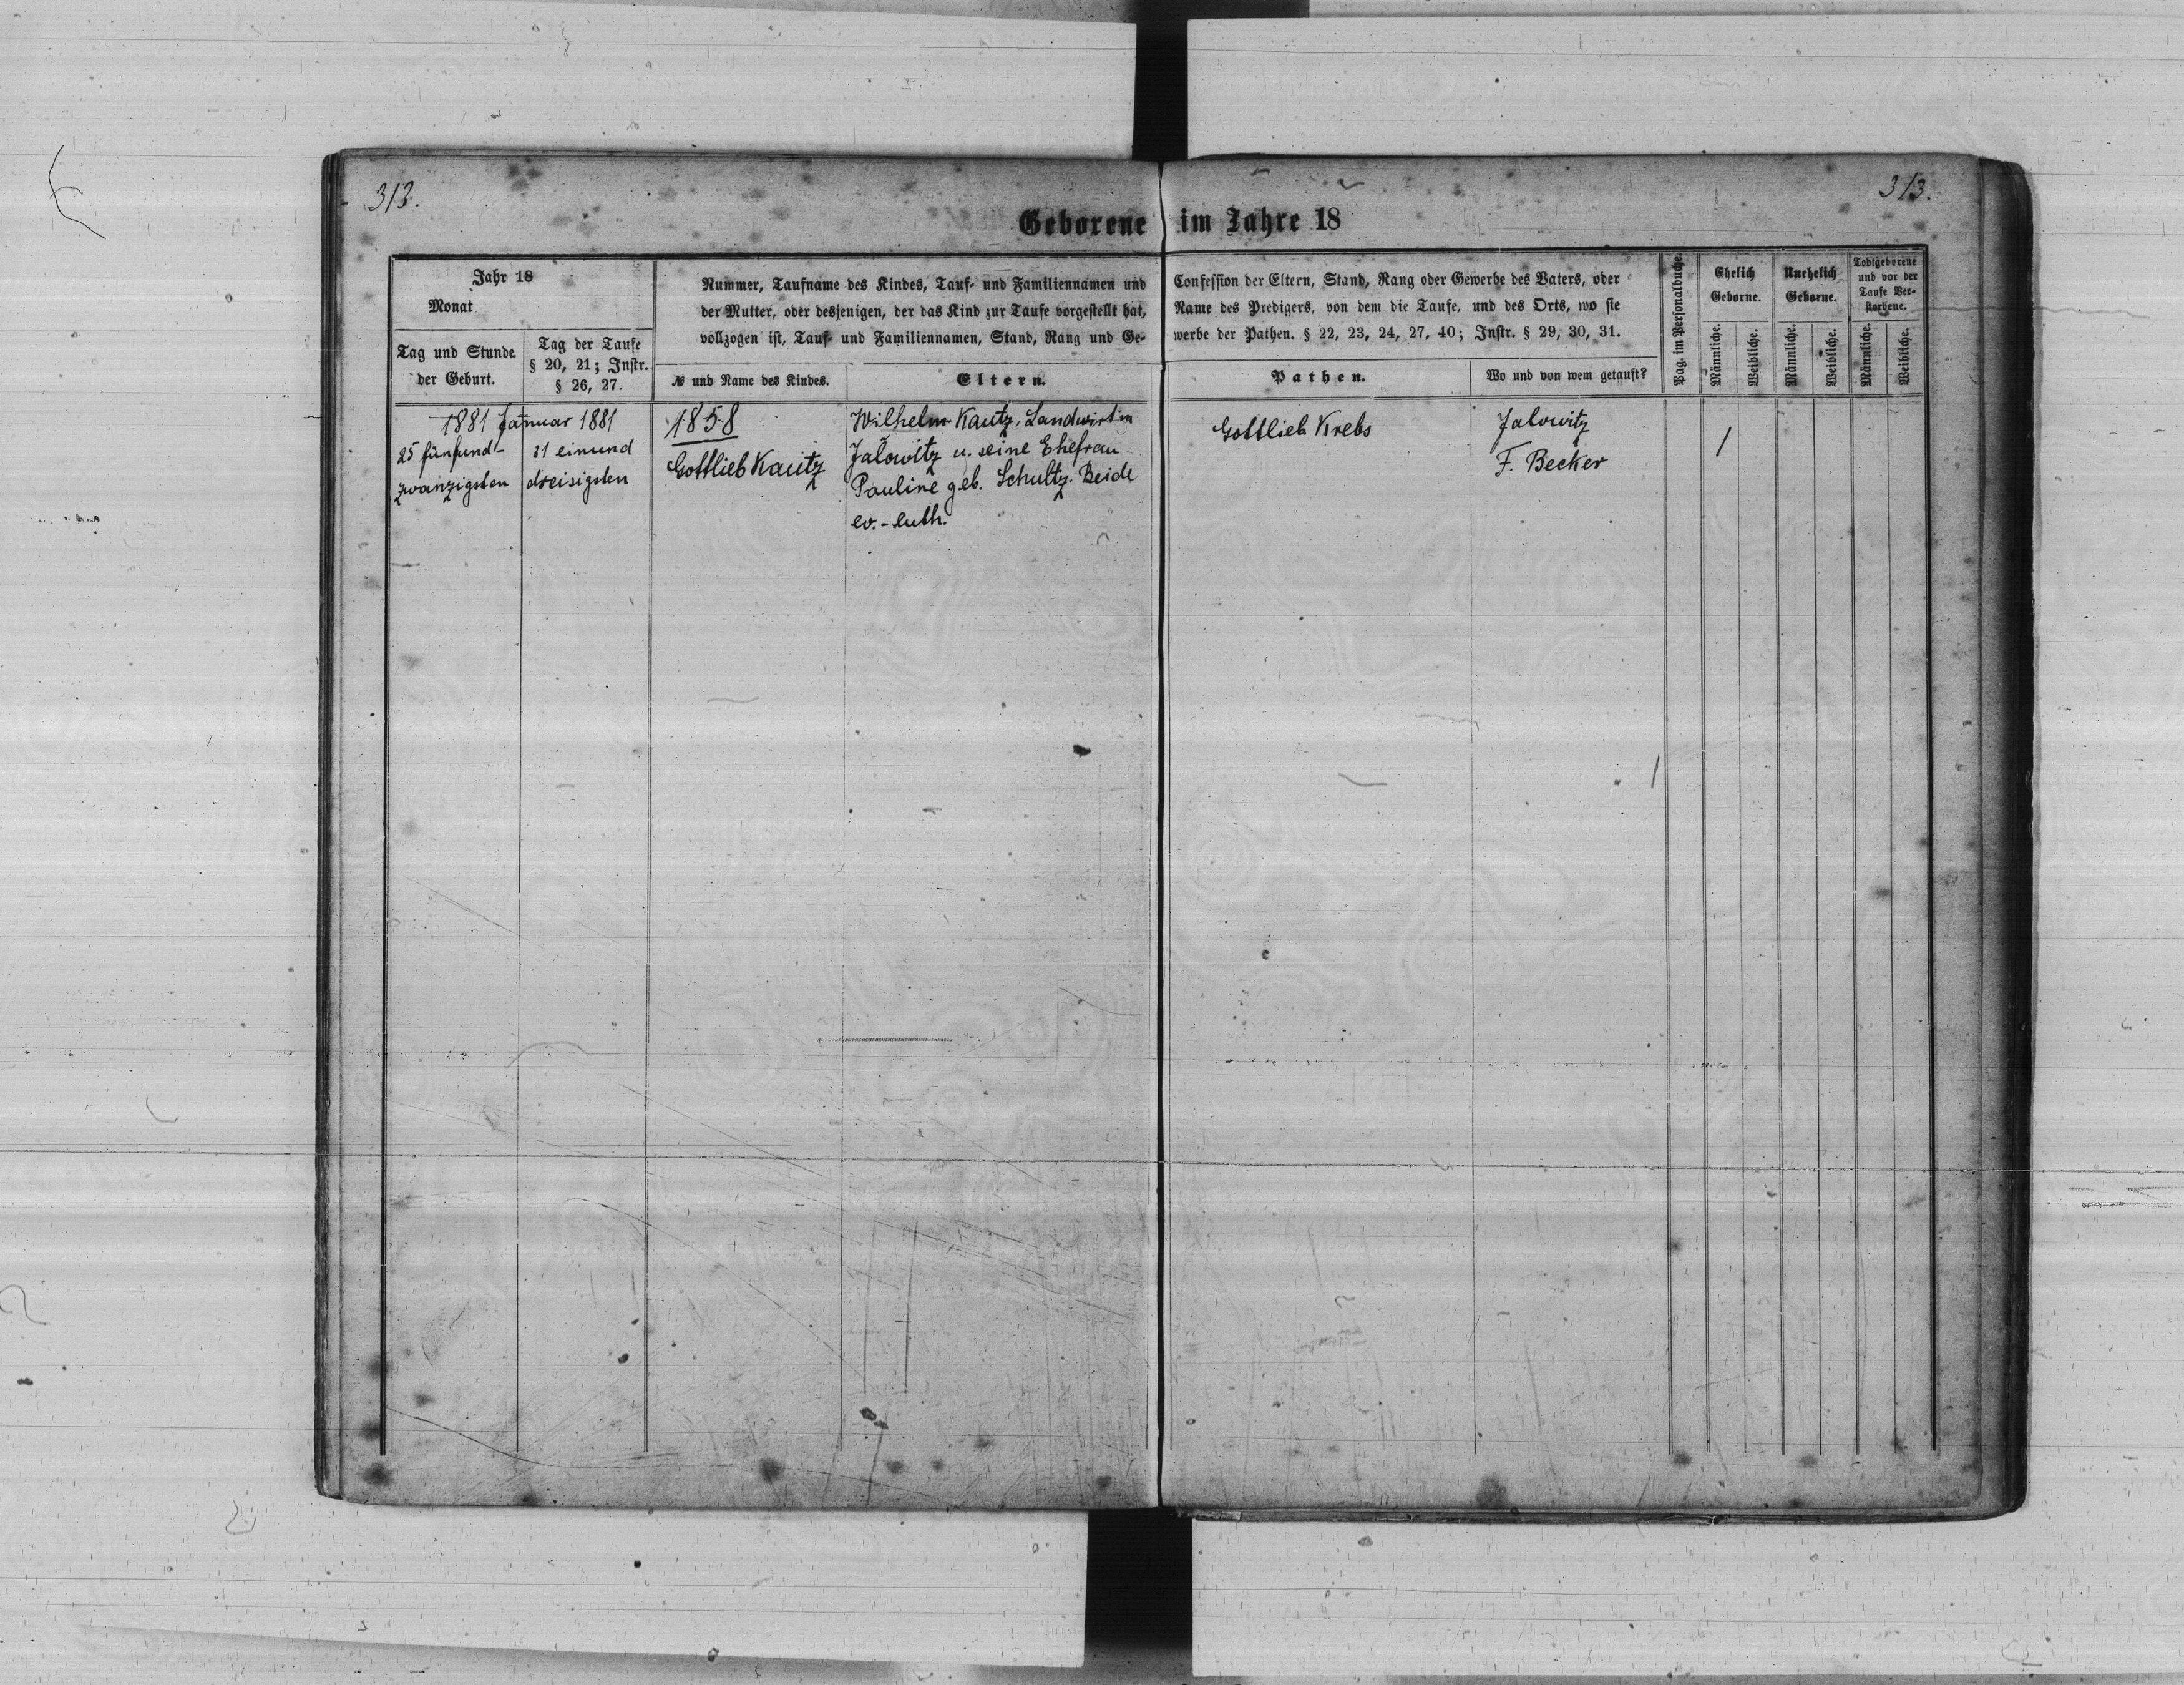 313.
313.
Geborene im Jahre 18
Jahr 18
Monat
Tag und Stunde
der Geburt.
Tag der Taufe
§ 20, 21; Instr.
§ 26, 27.
Nummer, Taufname des Kindes, Tauf- und Familiennamen und
der Mutter, oder desjenigen, der das Kind zur Taufe vorgestellt hat,
vollzogen ist, Tauf- und Familiennamen, Stand, Rang und Ge-
№ und Name des Kindes.
Eltern.
Confession der Eltern, Stand, Rang oder Gewerbe des Vaters, oder
Name des Predigers, von dem die Taufe, und des Orts, wo sie
werbe der Pathen. § 22, 23, 24, 27, 40; Instr. § 29, 30, 31.
Pathen.
Wo und von wem getauft?
Pag. im Personalbuche.
Ehelich
Geborne.
Männliche.
Weibliche.
Unehelich
Geborne.
Männliche.
Weibliche.
Todtgeborene
und vor der
Taufe Ver-
storbene.
Männliche.
Weibliche.
1881 Januar 1881
25 fünfund-
zwanzigsten
31 einund
dreisigsten
1858
Gottlieb Kautz
Wilhelm Kautz, Landwirt in
Jalowitz u. seine Ehefrau
Pauline geb. Schultz. Beide
ev.-luth.
Gottlieb Krebs
Jalowitz
F. Becker
1